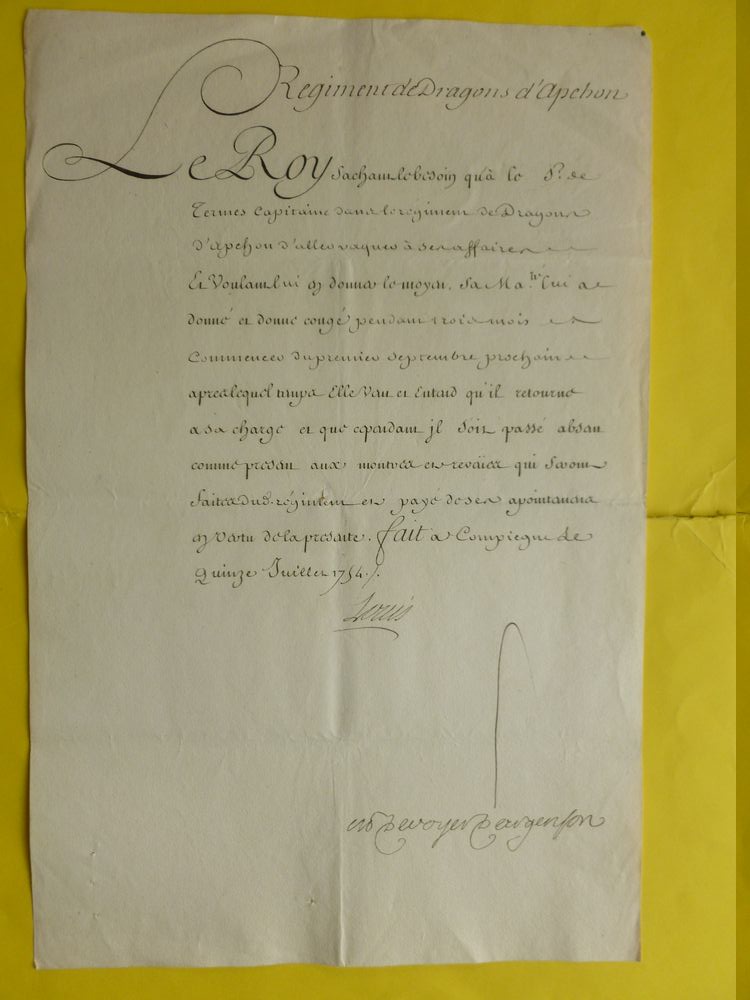 Regiment de Dragons d'Apchon
Le Roy sachant le besoin qu'à le Sr. de
Termes Capitaine dans le regiment de Dragons
d'Apchon d'aller vaquer à ses affaires
Et Voulant lui en donner le moyen, Sa Ma.té lui a
donné et donne congé pendant trois mois
Commencer du premier Septembre prochain
apres lequel temps Elle Veut et Entend qu'il retourne
a sa charge et que cependant jl soit passé absent
comme present aux montres et revües qui seront
faites dud. régiment et payé de ses apointemens
en vertu de la presente. fait a Compiegne le
Quinze Juillet 1754./.
Louis
M de Voyer D'argenson